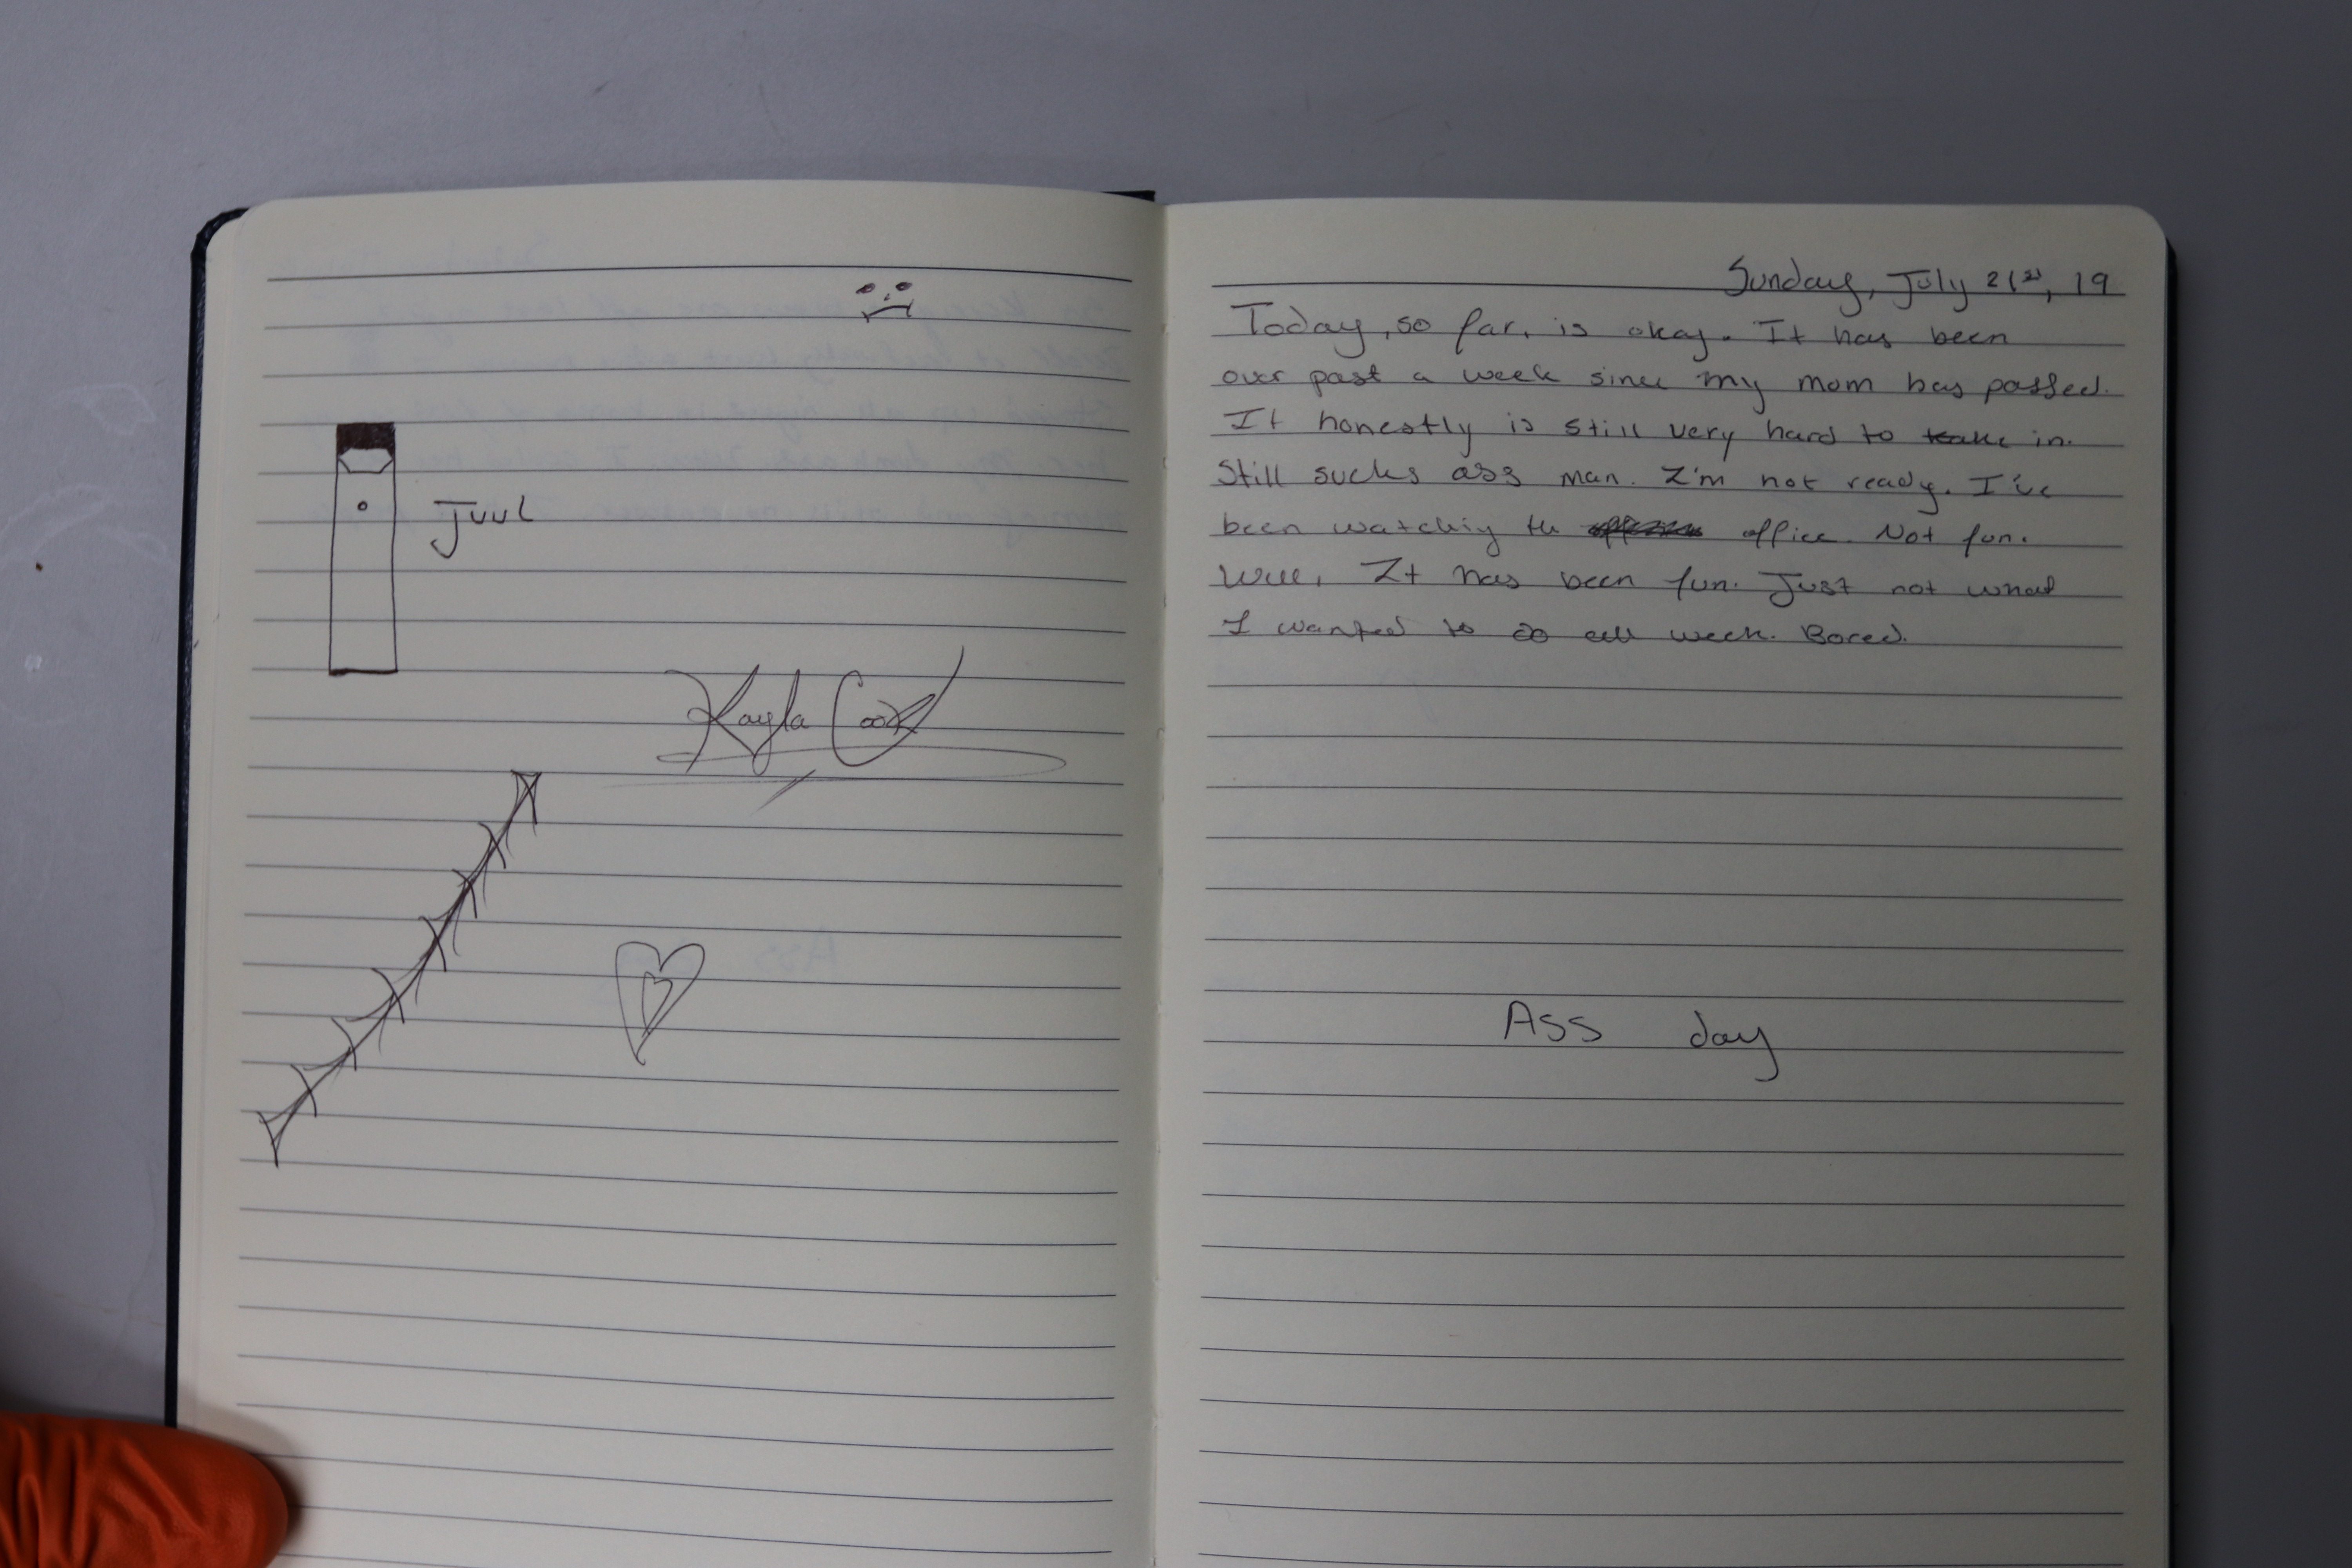 Juul
Kayla Cook
Sunday, July 21st, 19
Today, so far, is okay. It has been
over past a week since my mom has passed.
It honestly is still very hard to take in.
Still sucks ass man. I'm not ready. I've
been watching the office. Not fun.
Well, It has been fun. Just not what
I wanted to do all week. Bored.
Ass day